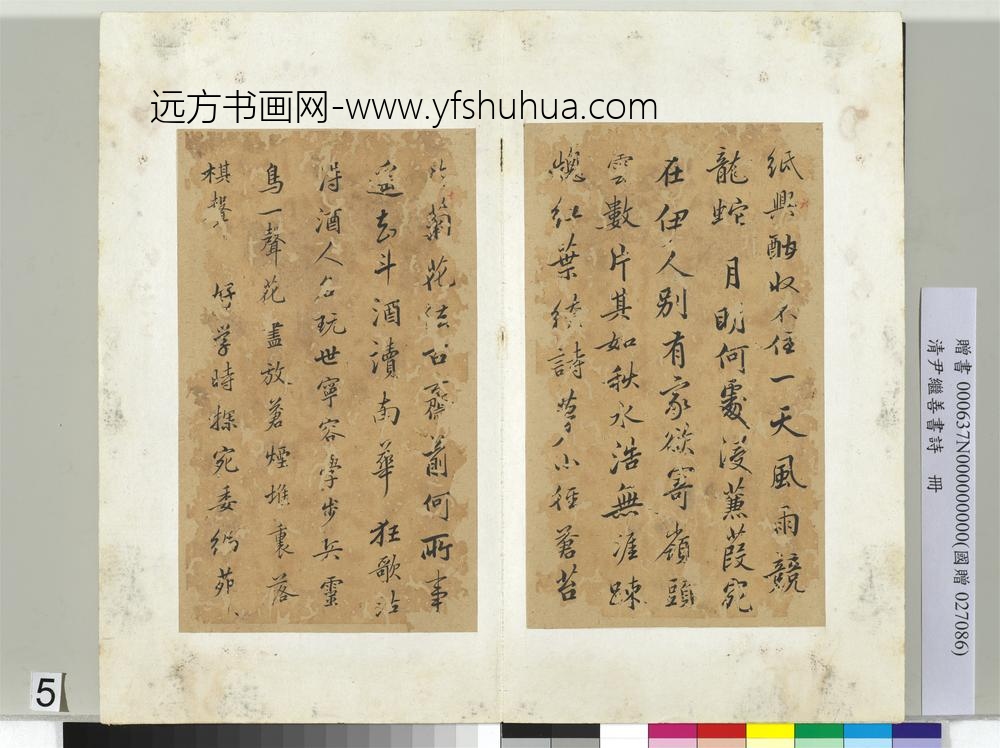 远方书画网-www.yfshuhua.com
紙興酣收不住一天風雨競
龍蛇 月明何處浸蒹葭宛
在伊人别有家欲寄嶺頭
雲數片其如秋水浩無涯踈
紅葉績詩夢小徑蒼苔
菊花法齋前何所事
遥去斗酒讀南華 狂歌沽
得酒人名玩世寧容學步兵靈
鳥一聲花盡放蒼煙堆裏落
棋聲 好學時探宛委編茆
5
贈書 000637N000000000(國贈 027086)
清尹繼善書詩 冊